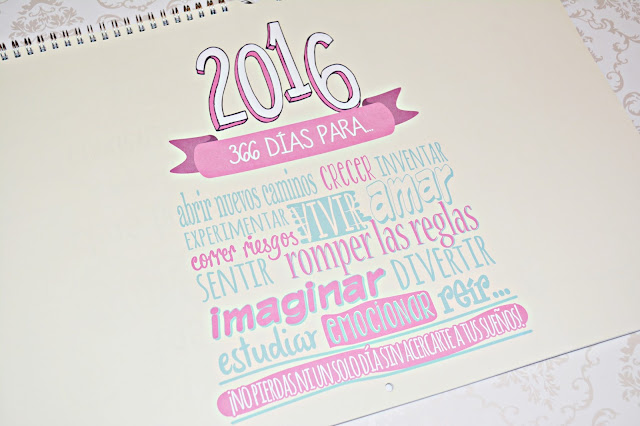 2016
366 DÍAS PARA...
abrir nuevos caminos CRECER INVENTAR
EXPERIMENTAR VIVIR amar
correr riesgos romper las reglas
SENTIR imaginar DIVERTIR
estudiar emocionar reír...
¡NO PIERDAS NI UN SOLO DÍA SIN ACERCARTE A TUS SUEÑOS!